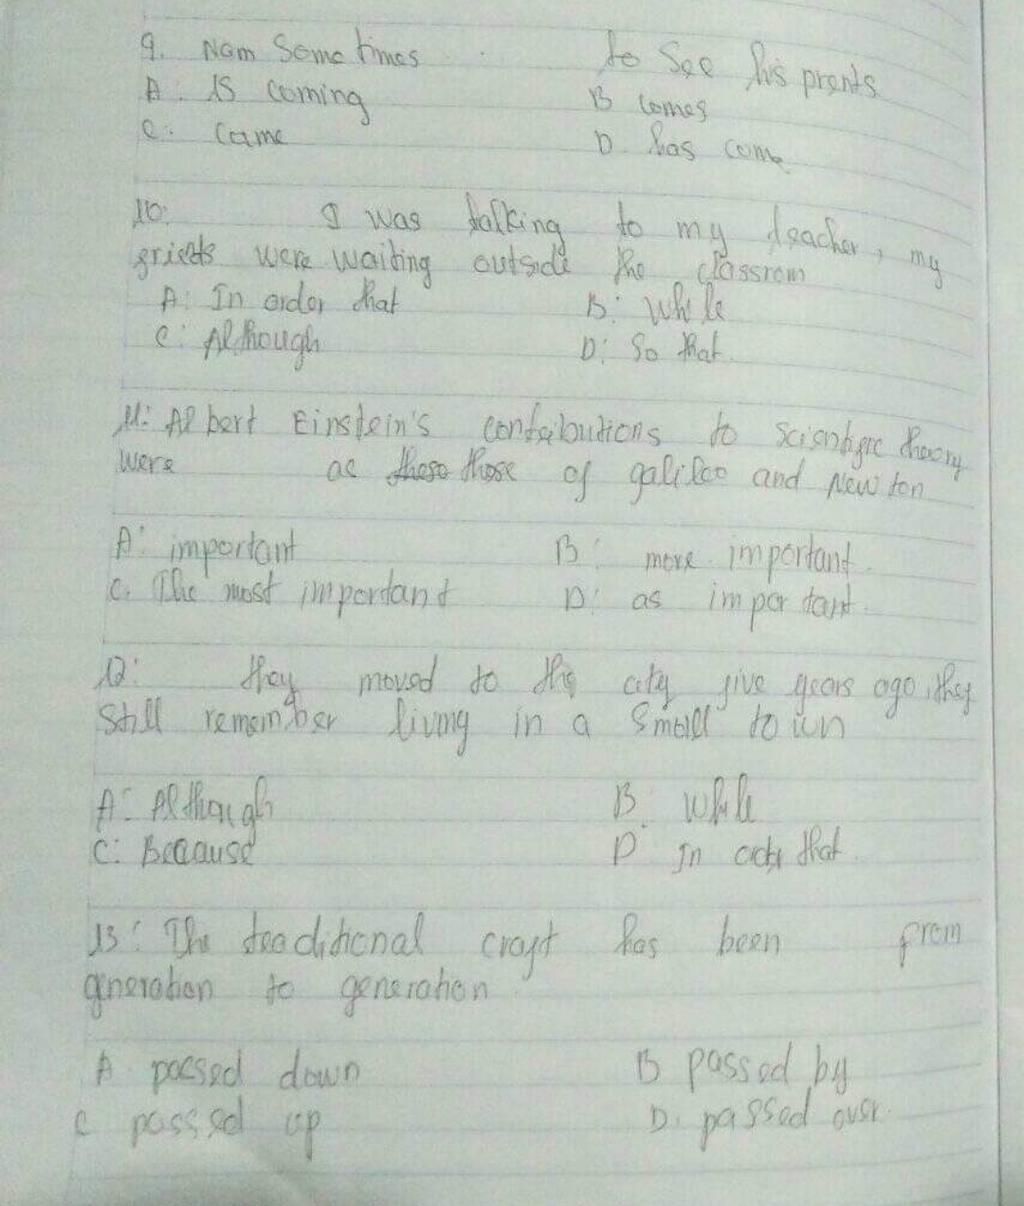 9. Nam Sometimes to See his prents
A: IS coming B comes
C: Came D. has come
10. I was talking to my teacher, my
grients were waiting outside the classrom
A: In order that B: While
C: Although D: So that.
11: Albert Einstein's contributions to scientific theory
were as those those of galileo and Newton
A: important B: more important.
C. The most important D: as important.
12: they moved to the city five years ago, they
Still remember living in a Small town
A: Although B. While
C: Because D In order that.
13: The traditional craft has been from
gneration to generation.
A passed down B passed by
C passed up D. passed over.